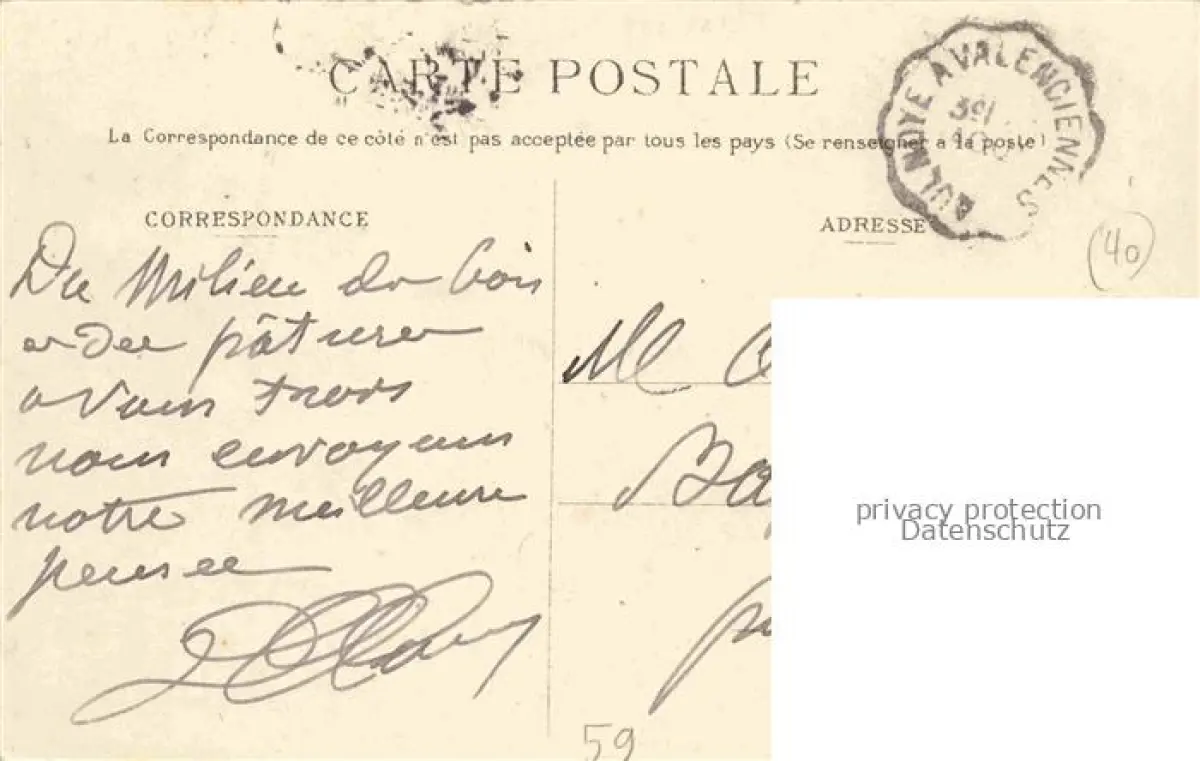 CARTE POSTALE
La Correspondance de ce côté n'est pas acceptée par tous les pays (Se renseigner a la poste)
AULNOYE A VALENCIENNES
CORRESPONDANCE
ADRESSE
40
Du Milieu des bois
et des pâtures
a vous trois
nous envoyons
notre meilleure
pensee
M
Ba
privacy protection
Datenschutz
59